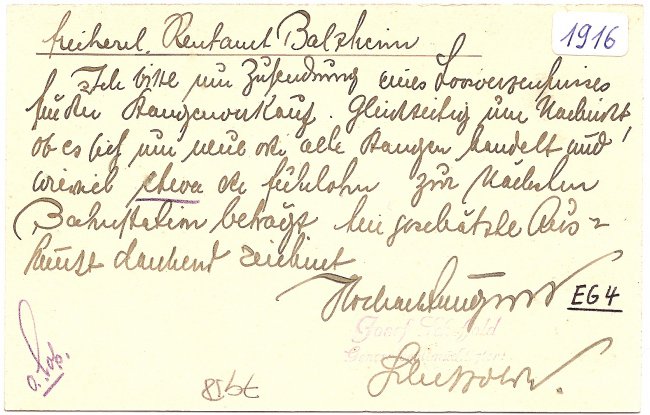 1916
freiherrl. Rentamt Balzheim
Ich bitte um Zusendung eines Losverzeichnisses
für den Stangenverkauf. Gleichzeitig um Nachricht,
ob es sich um neue oder alte Stangen handelt und
wieviel etwa der Fuhrlohn zur nächsten
Bahnstation beträgt. Für geschätzte Aus=
kunft dankend zeichnet
Hochachtungsvoll
EG4
Josef